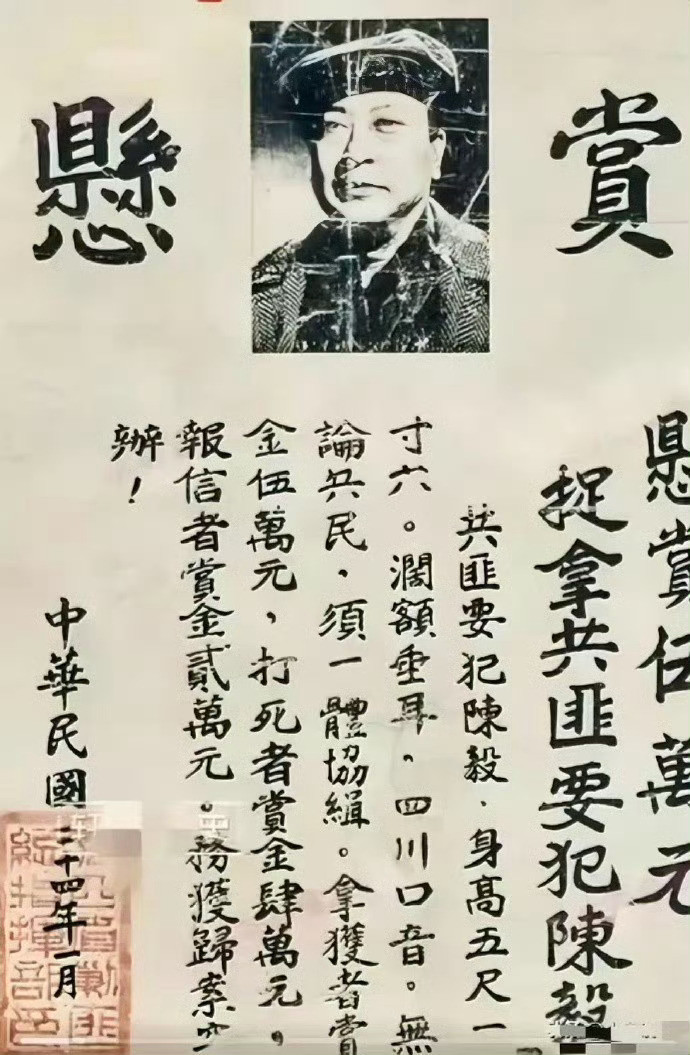 懸賞
懸賞伍萬元
捉拿共匪要犯陳毅
共匪要犯陳毅．身高五尺一
寸六。濶額垂耳。四川口音。無
論兵民，須一體協緝。拿獲者賞
金伍萬元，打死者賞金肆萬元，
報信者賞金貳萬元。務獲歸案
辦！
中華民國二十四年一月
剿匪
總指揮部